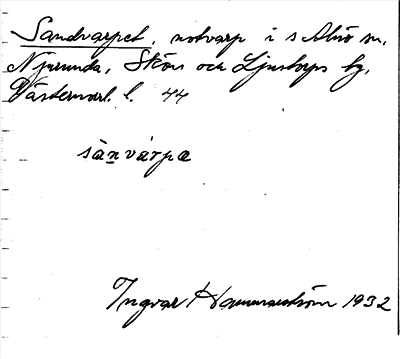 Sandvarpet, notvarp i s Alnö sn,
Njurunda, Sköns och Ljustorps tg,
Västernorrl. l. 44
sànvárpæ
Ingvar Hammarström 1932